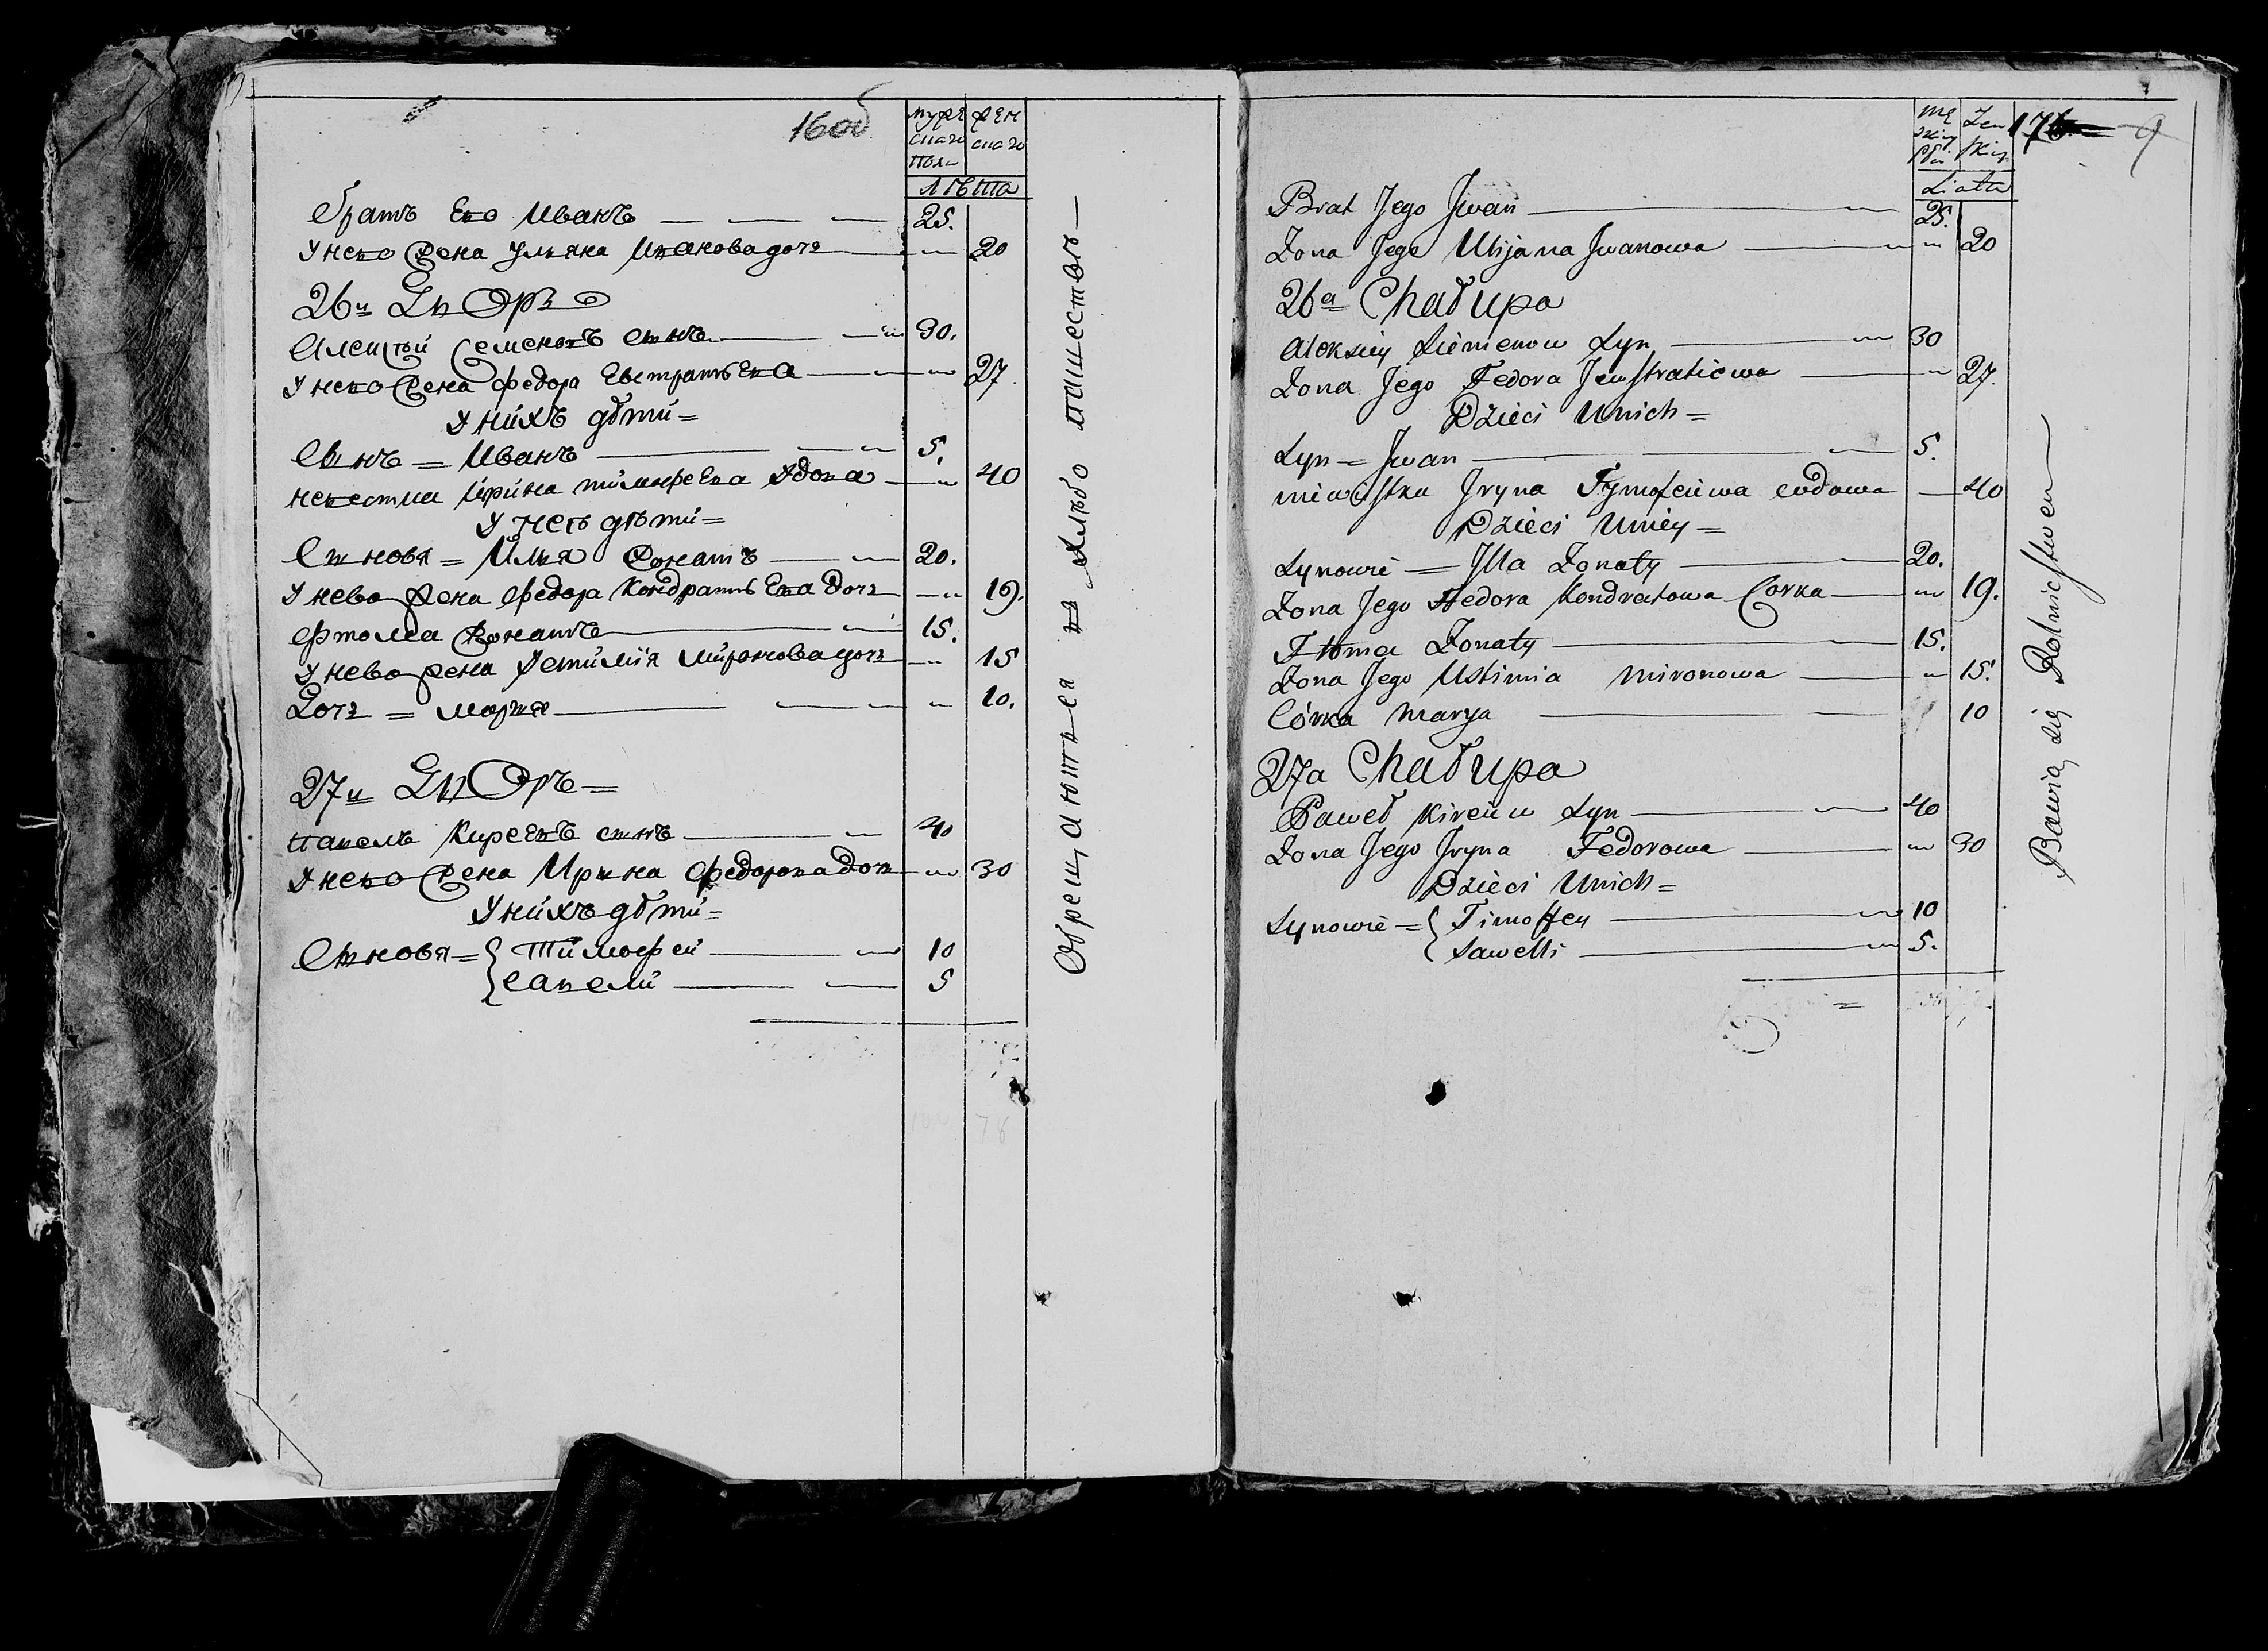 160б
муже
скаго
полу
жен
скаго
лѣта
Братъ Ево Иванъ 25.
У нево жена Ульяна Иванова дочь 20
26й Дворъ
Алексѣй Семеновъ сынъ 30.
У нево жена Федора Евстратьева 27
У нихъ дѣти =
Сынъ = Иванъ 5.
невестка Ирина тимофеева вдова 40
У неѣ дѣти =
Сыновя = Илья Женатъ 20.
У нево жена Федора Кондратьева дочь 19.
Фтома Женатъ 15.
У нево жена Устимія миронова дочь 15
Дочь = марья 10.
27й Дворъ =
павелъ Киреевъ сынъ 40
У нево жена Ирина Федорова дочь 30
У нихъ дѣти =
Сыновя = { Тимофей 10
{ Савели 5
Обрещаютьса в хлѣбо пашествѣ
176 9
Mę
skiey
Płci
Żen
skiey
Liata
Brat Jego Jwan 25.
Żona Jego Ulijana Jwanowa 20
26a Chałupa
Aleksiey Siemienow Syn 30
Żona Jego Fedora Jewstratiewa 27.
Dzieci Unich =
Syn = Jwan 5.
niewistka Jryna Tymofeiewa wdowa 40
Dzieci Uniey =
Synowie = Jlla Żonaty 20.
Żona Jego Fedora Kondratowa Corka 19.
Ftoma Żonaty 15.
Żona Jego Ustimia mironowa 15.
Córka marya 10
27a Chałupa
Paweł Kireiew Syn 40
Żona Jego Jryna Fedorowa 30
Dzieci Unich =
Synowie = { Timoffey 10
{ Sawelli 5.
Bawią się Rolnictwem